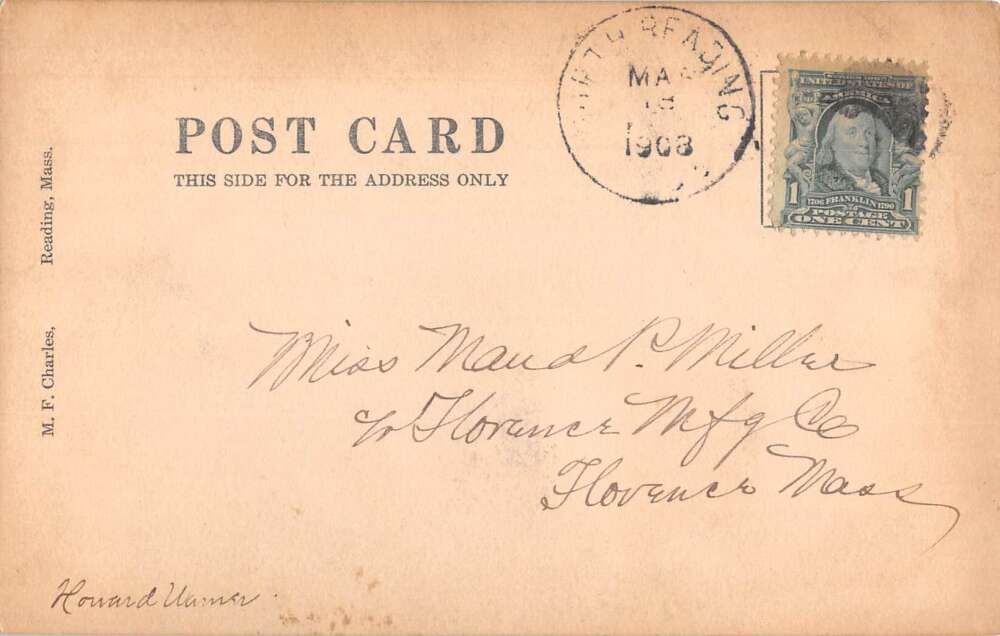 POST CARD
THIS SIDE FOR THE ADDRESS ONLY
M. F. Charles, Reading, Mass.
NORTH READING
18
1908
UNITED STATES OF
AMERICA
1706 FRANKLIN 1790
POSTAGE
1 ONE CENT 1
Miss Maud P. Miller
c/o Florence Mfg Co
Florence Mass
Howard